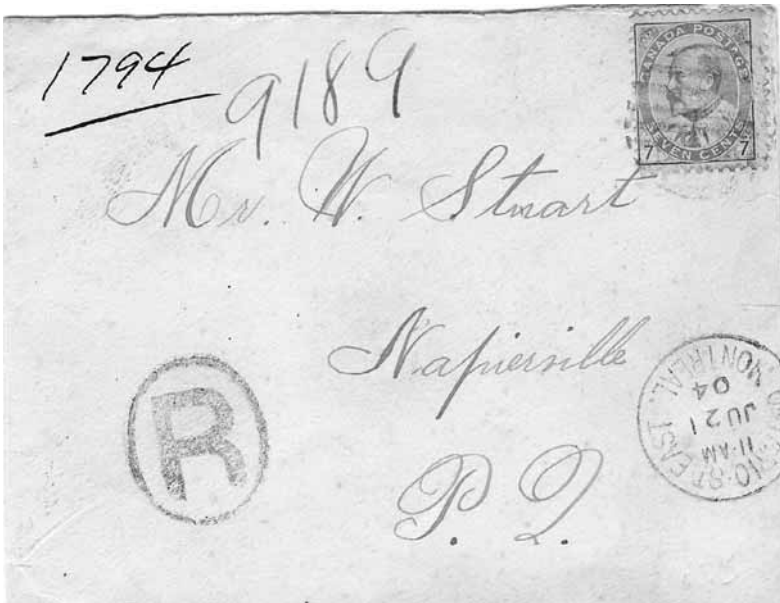 1794
9189
CANADA POSTAGE
SEVEN CENTS
7 7
Mr. W. Stuart
Napierville
P. Q.
R
ST EAST
MONTREAL
11·AM
JU 21
04